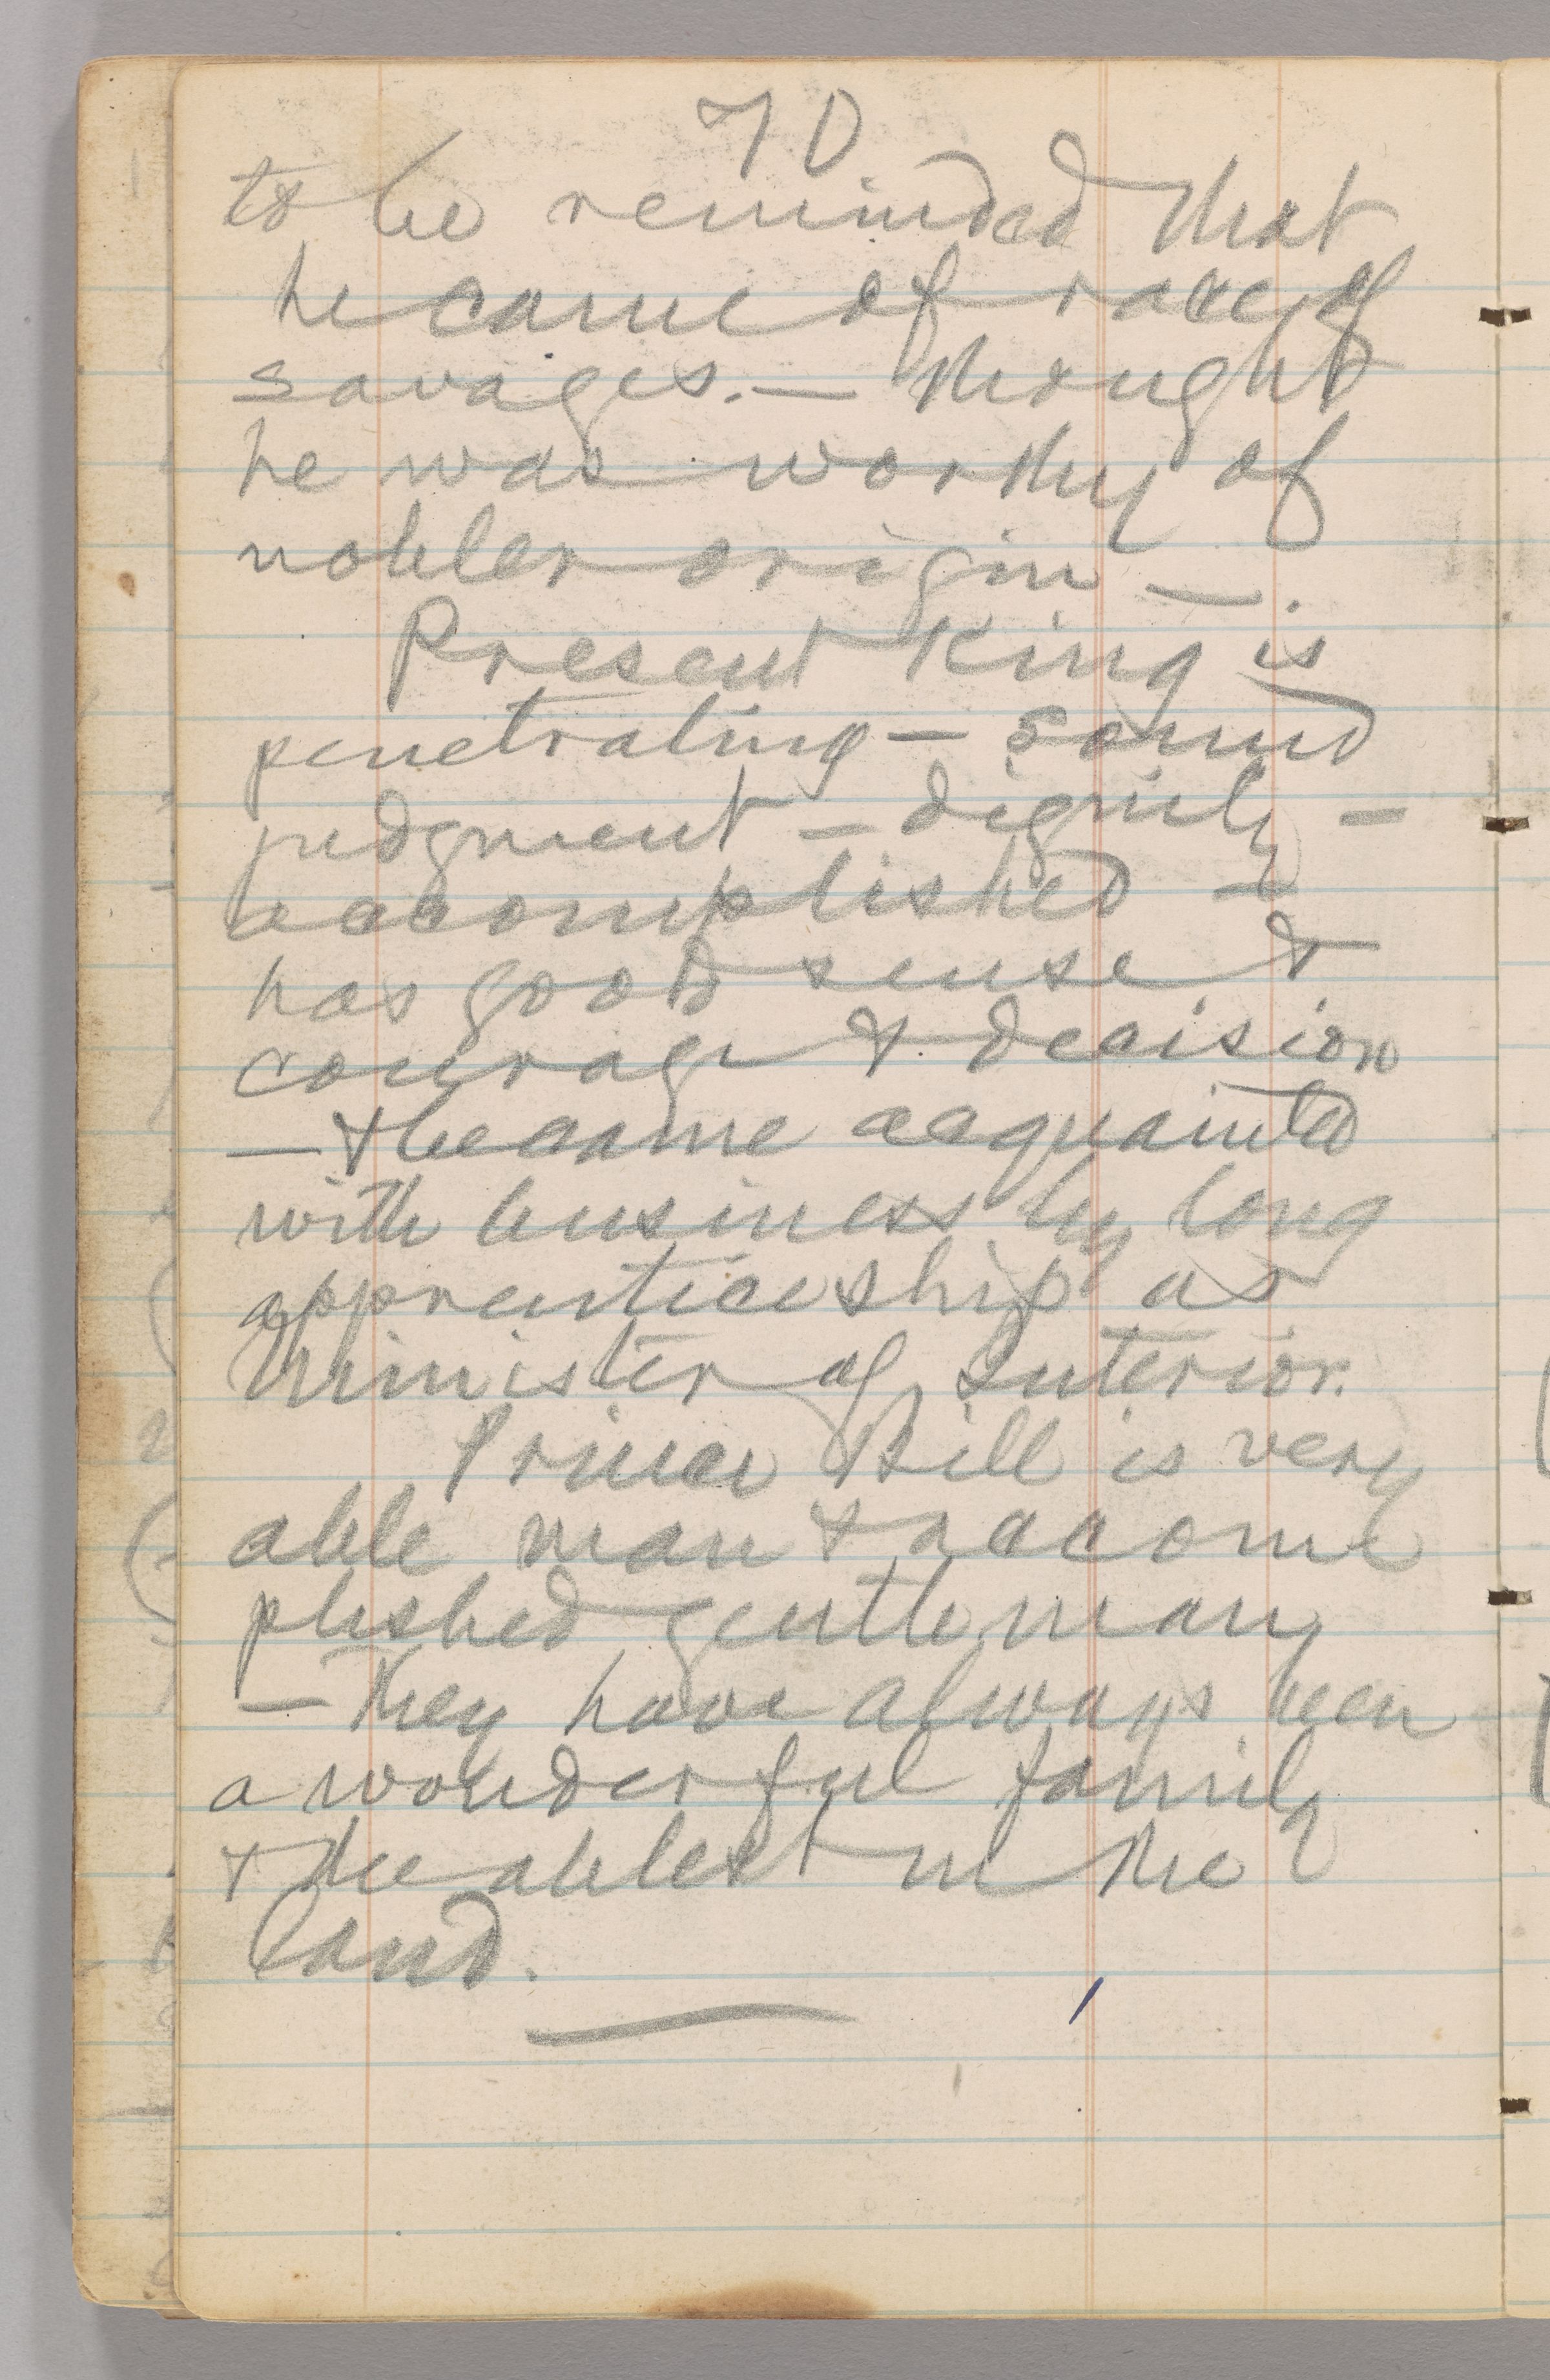 70
to be reminded that
he came of race of
savages. — thought
he was worthy of
nobler origin —.
Present King is
penetrating — sound
judgment — dignity —
accomplished —
has good sense &
courage & decision
— & became acquainted
with business by long
apprenticeship as
Minister of Interior.
Prince Bill is very
able man & accom
plished gentleman
— They have always been
a wonderful family
& the ablest in the
land.